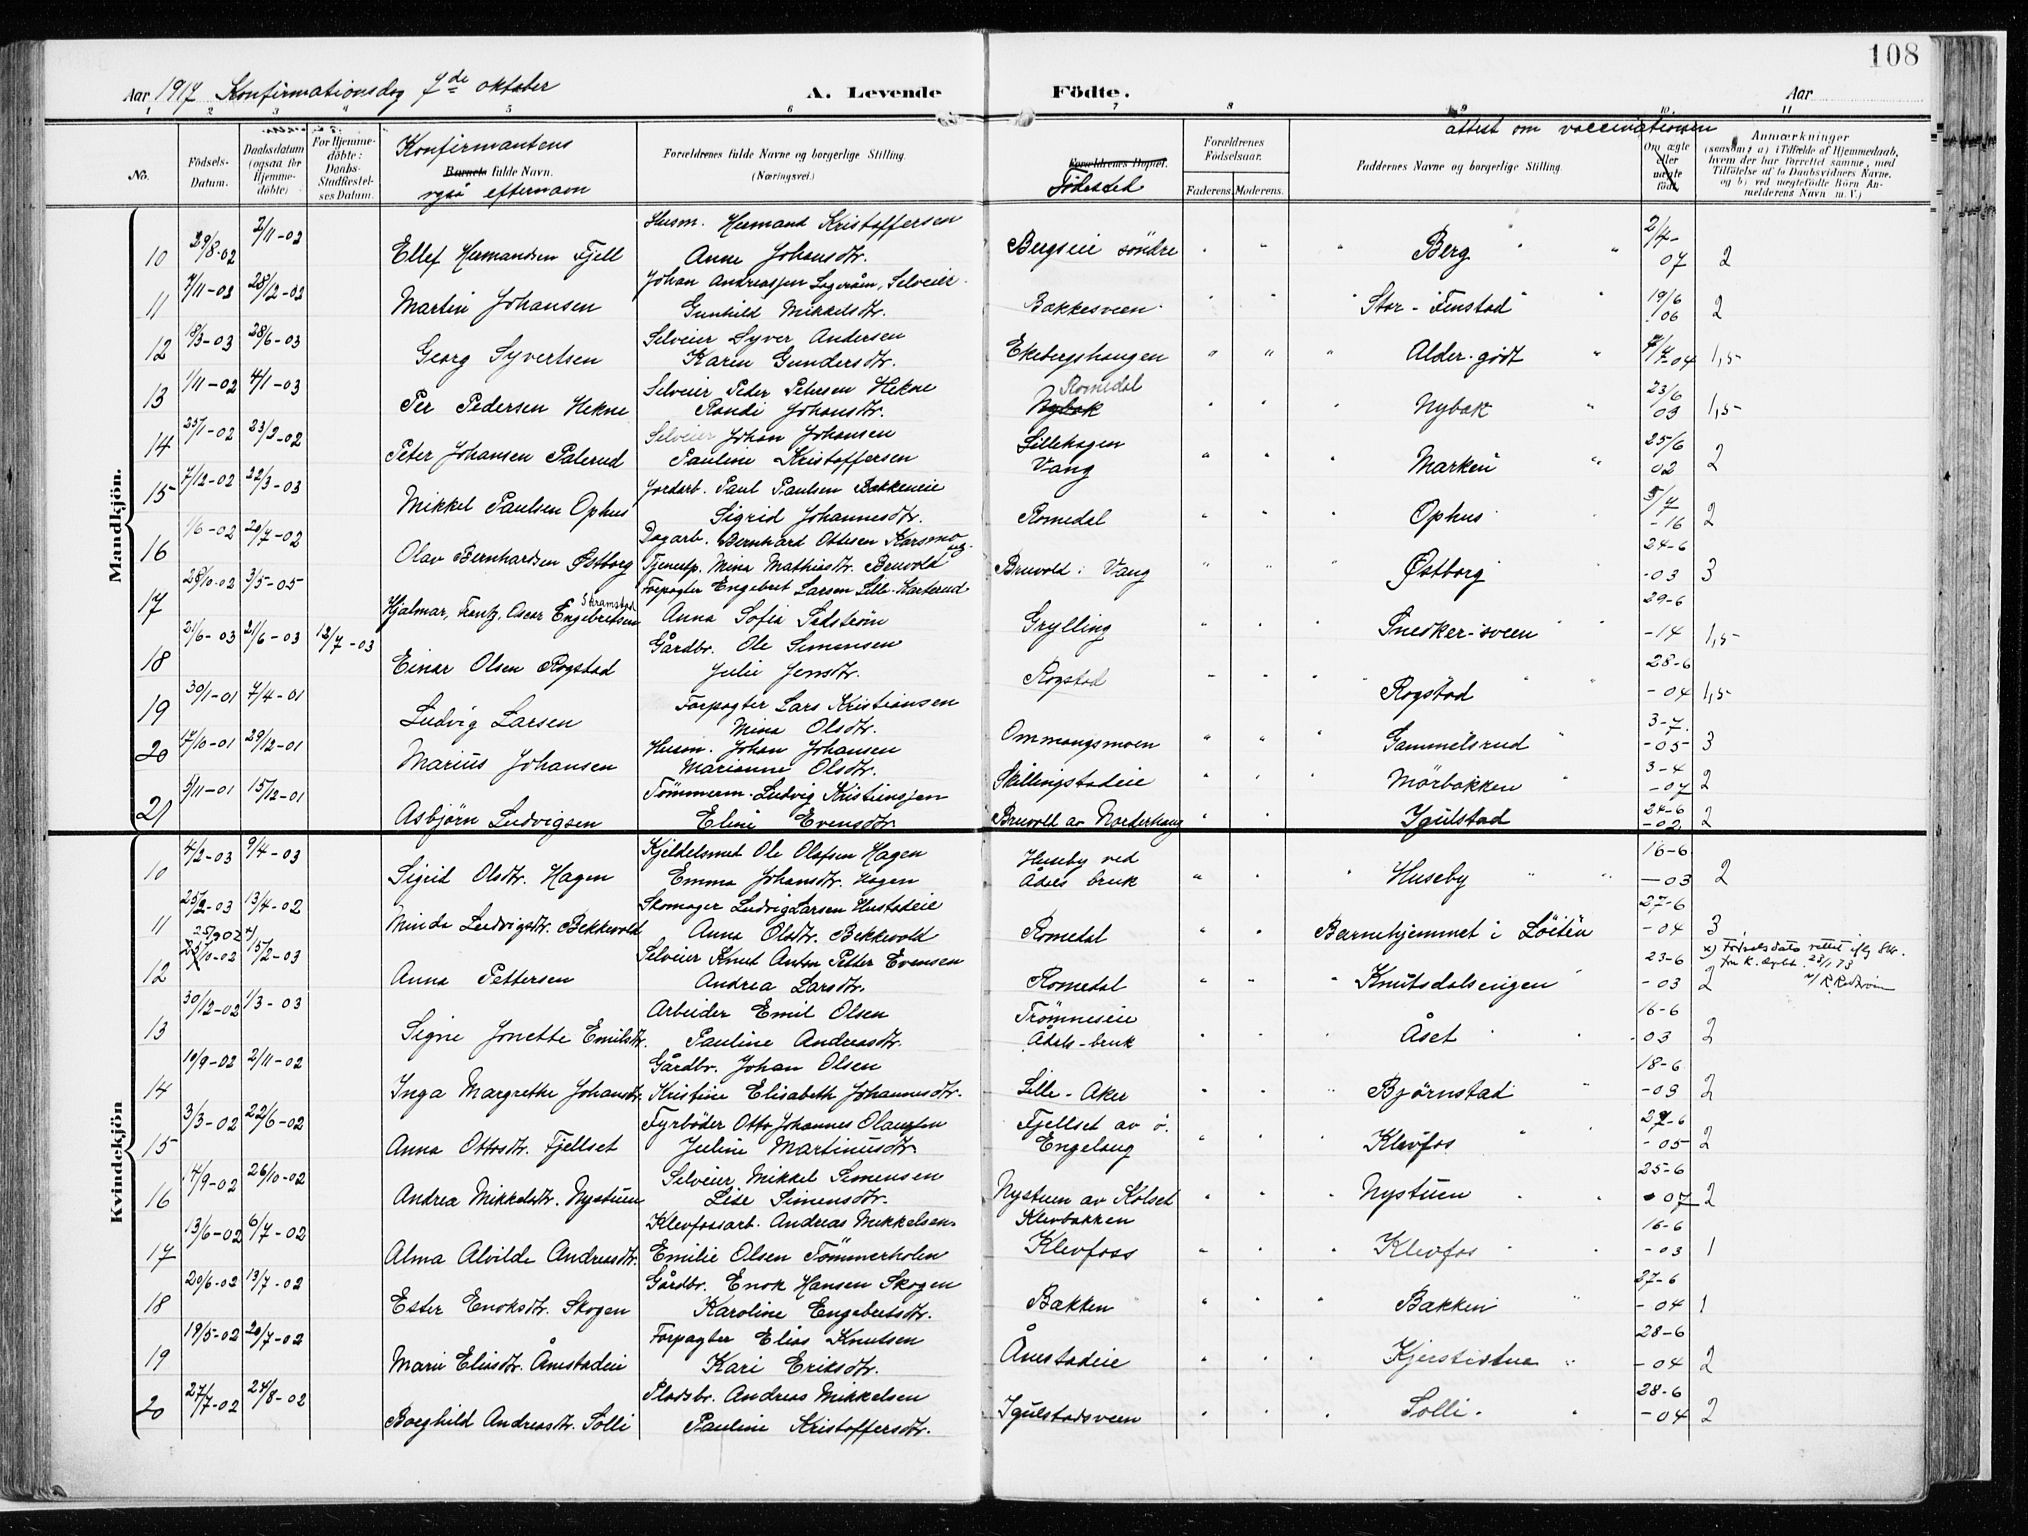 108
Aar 1917 Konfirmationsdag 7de oktober A. Levende Födte. Aar
1 2 3 4 5 6 7 8 9 10 11
No.
Födsels-Datum.
Daabsdatum (ogsaa for Hjemme-döbte)
For Hjemme-döbte: Daabs-Stadfæstel-ses Datum.
Konfirmantens
Barnets fulde Navn.
også efternavn
Forældrenes fulde Navne og borgerlige Stilling.
(Næringsvei.)
Forældrenes Bopæl.
Fødested
Forældrenes Födselsaar.
Faderens. Moderens.
Faddernes Navne og borgerlige Stilling.
attest om vaccinationen
Om ægte eller uægte födt.
Anmærkninger
(saasom: a) i Tilfælde af Hjemmedaab, hvem der har forrettet samme, med Tilföielse af to Daabsvidners Navne, og b) ved uægtefödte Börn An-melderens Navn m. V.)
Mandkjön.
10 29/8-02 2/11-02 Ellef Hermandsen Fjell Husm. Hermand Kristoffersen Anne Johansdtr. Bergseie söndre Berg 2/4-07 2
11 7/11-03 28/12-03 Martin Johansen Johan Andreassen, Selveier Gunhild Mikkelsdtr. Bakkesveen Stor-Finstad 19/6 06 2
12 8/3-03 28/6-03 Georg Syvertsen Selveier Syver Andersen Karen Gundersdtr. Ekebergshaugen Alder-godt 04 1,5
13 1/11-02 4/1-03 Per Pedersen Hekne Selveier Peder Petersen Hekne Randi Johansdtr. Romedal Nybak Nybak 23/6 03 1,5
14 25/1-02 23/2-02 Peter Johansen Palerud Selveier Johan Johansen Pauline Kristoffersen Lillehagen Vang Marken 25/6 02 2
15 7/12-02 22/3-03 Mikkel Paulsen Ophus Jordarb. Paul Paulsen Bakkeneie Sigrid Johannesdtr. Romedal Ophus 5/7-16 2
16 1/6-02 20/7-02 Olav Bernhardsen Østborg Dagarb. Bernhard Ottesen Karsmo og Tjenestp. Mina Mathiasdtr. Bruvold Bruvold i Vang Østborg 24-6-03 3
17 28/10-02 3/5-05 Hjalmar, Frantz, Oscar Engebretsen Strømstad Forpagter Engebret Larsen Lille-Karterud Anna Sofia Sadström Grylling Snekker-sveen 29-6-14 1,5
18 21/6-03 21/6-03 12/7-03 Einar Olsen Rogstad Gårdbr. Ole Simensen Julie Jensdtr. Rogstad Rogstad 28-6-04 1,5
19 30/1-01 7/4-01 Ludvig Larsen Forpagter Lars Kristiansen Mina Olsdtr. Ommangsmoen Gammelsrud 3-7-05 3
20 17/10-01 29/12-01 Marius Johansen Husm. Johan Johansen Marianne Olsdtr. Skillingstadeie Mörbakken 3-4-07 2
21 5/11-01 15/12-01 Asbjörn Ludvigsen Tömmerm. Ludvig Kristiansen Eline Evensdtr. Bruvold av Norderhaug Igulstad 24-6-02 2
Kvindekjön
10 4/2-03 9/4-03 Sigrid Olsdtr. Hagen Kjeldelsmet Ole Olafsen Hagen Emma Johansdtr. Hagen Huseby ved Ådals bruk Huseby 16-6-03 2
11 25/2-03 13/4-02 Minda Ludvigsdtr. Bekkevold Skomager Ludvig Larsen Hustadeie Anna Olsdtr. Bekkevold Romedal Barnehjemmet i Löiten 27-6-04 3
12 25/9 02 x/ 25/10-02 15/2-03 Anna Pettersen Selveier Knut Anton Petter Evensen Andrea Larsdtr. Romedal Knutsdalsengen 23-6-03 2 x) Fødselsdato rettet iflg Skr. fra 23/1 73
13 30/12-02 1/3-03 Signe Jonette Emilsdtr. Arbeider Emil Olsen Pauline Andreasdtr. Trömneseie Ådals-bruk Åset 16-6-03 2
14 19/9-02 2/11-02 Inga Margrethe Johansdtr. Gårdbr. Johan Olsen Kristine Elisabeth Johannesdtr. Lille-Aker Björnstad 18-6-03 2
15 3/3-02 22/6-02 Anna Ottosdtr. Fjellset Fyrböder Otto Johannes Olaussen Juline Martinusdtr. Fjellset av ö. Engelaug Klevfos 27-6-05 2
16 4/9-02 26/10-02 Andrea Mikkelsdtr. Nystuen Selveier Mikkel Simensen Lise Simensdtr. Nystuen av Kolset Nystuen 25-6-07 2
17 13/6-02 6/7-02 Alma Alvilde Andreasdtr. Klevfossarb. Andreas Mikkelsen Emilie Olsen Tömmerholen Klevbakken Klevfoss Klevfos 16-6-03 1
18 20/6-02 13/7-02 Ester Enoksdtr. Skogen Gårdbr. Enok Hansen Skogen Karoline Engebretsdtr. Bakken Bakken 27-6-04 1
19 19/5-02 20/7-02 Marie Eliasdtr. Ånestadeie Forpagter Elias Knutsen Kari Eriksdtr. Ånestadeie Kjerstistua 28-6-04 2
20 27/7-02 24/8-02 Borghild Andreasdtr. Solli Pladsbr. Andreas Mikkelsen Pauline Kristoffersdtr. Igulstadsveen Solli 28-6-04 2